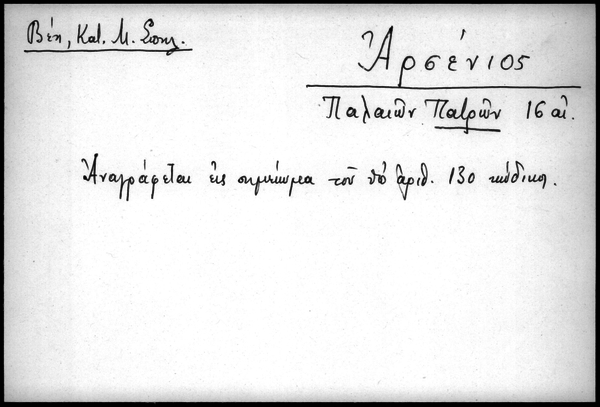 Βέη, Κατ. Μ. Σπηλ.
Ἀρσένιος
Παλαιῶν Πατρῶν 16 αἰ.
Ἀναγράφεται εἰς σημείωμα τοῦ ὑπ' ἀριθ. 130 κώδικος.